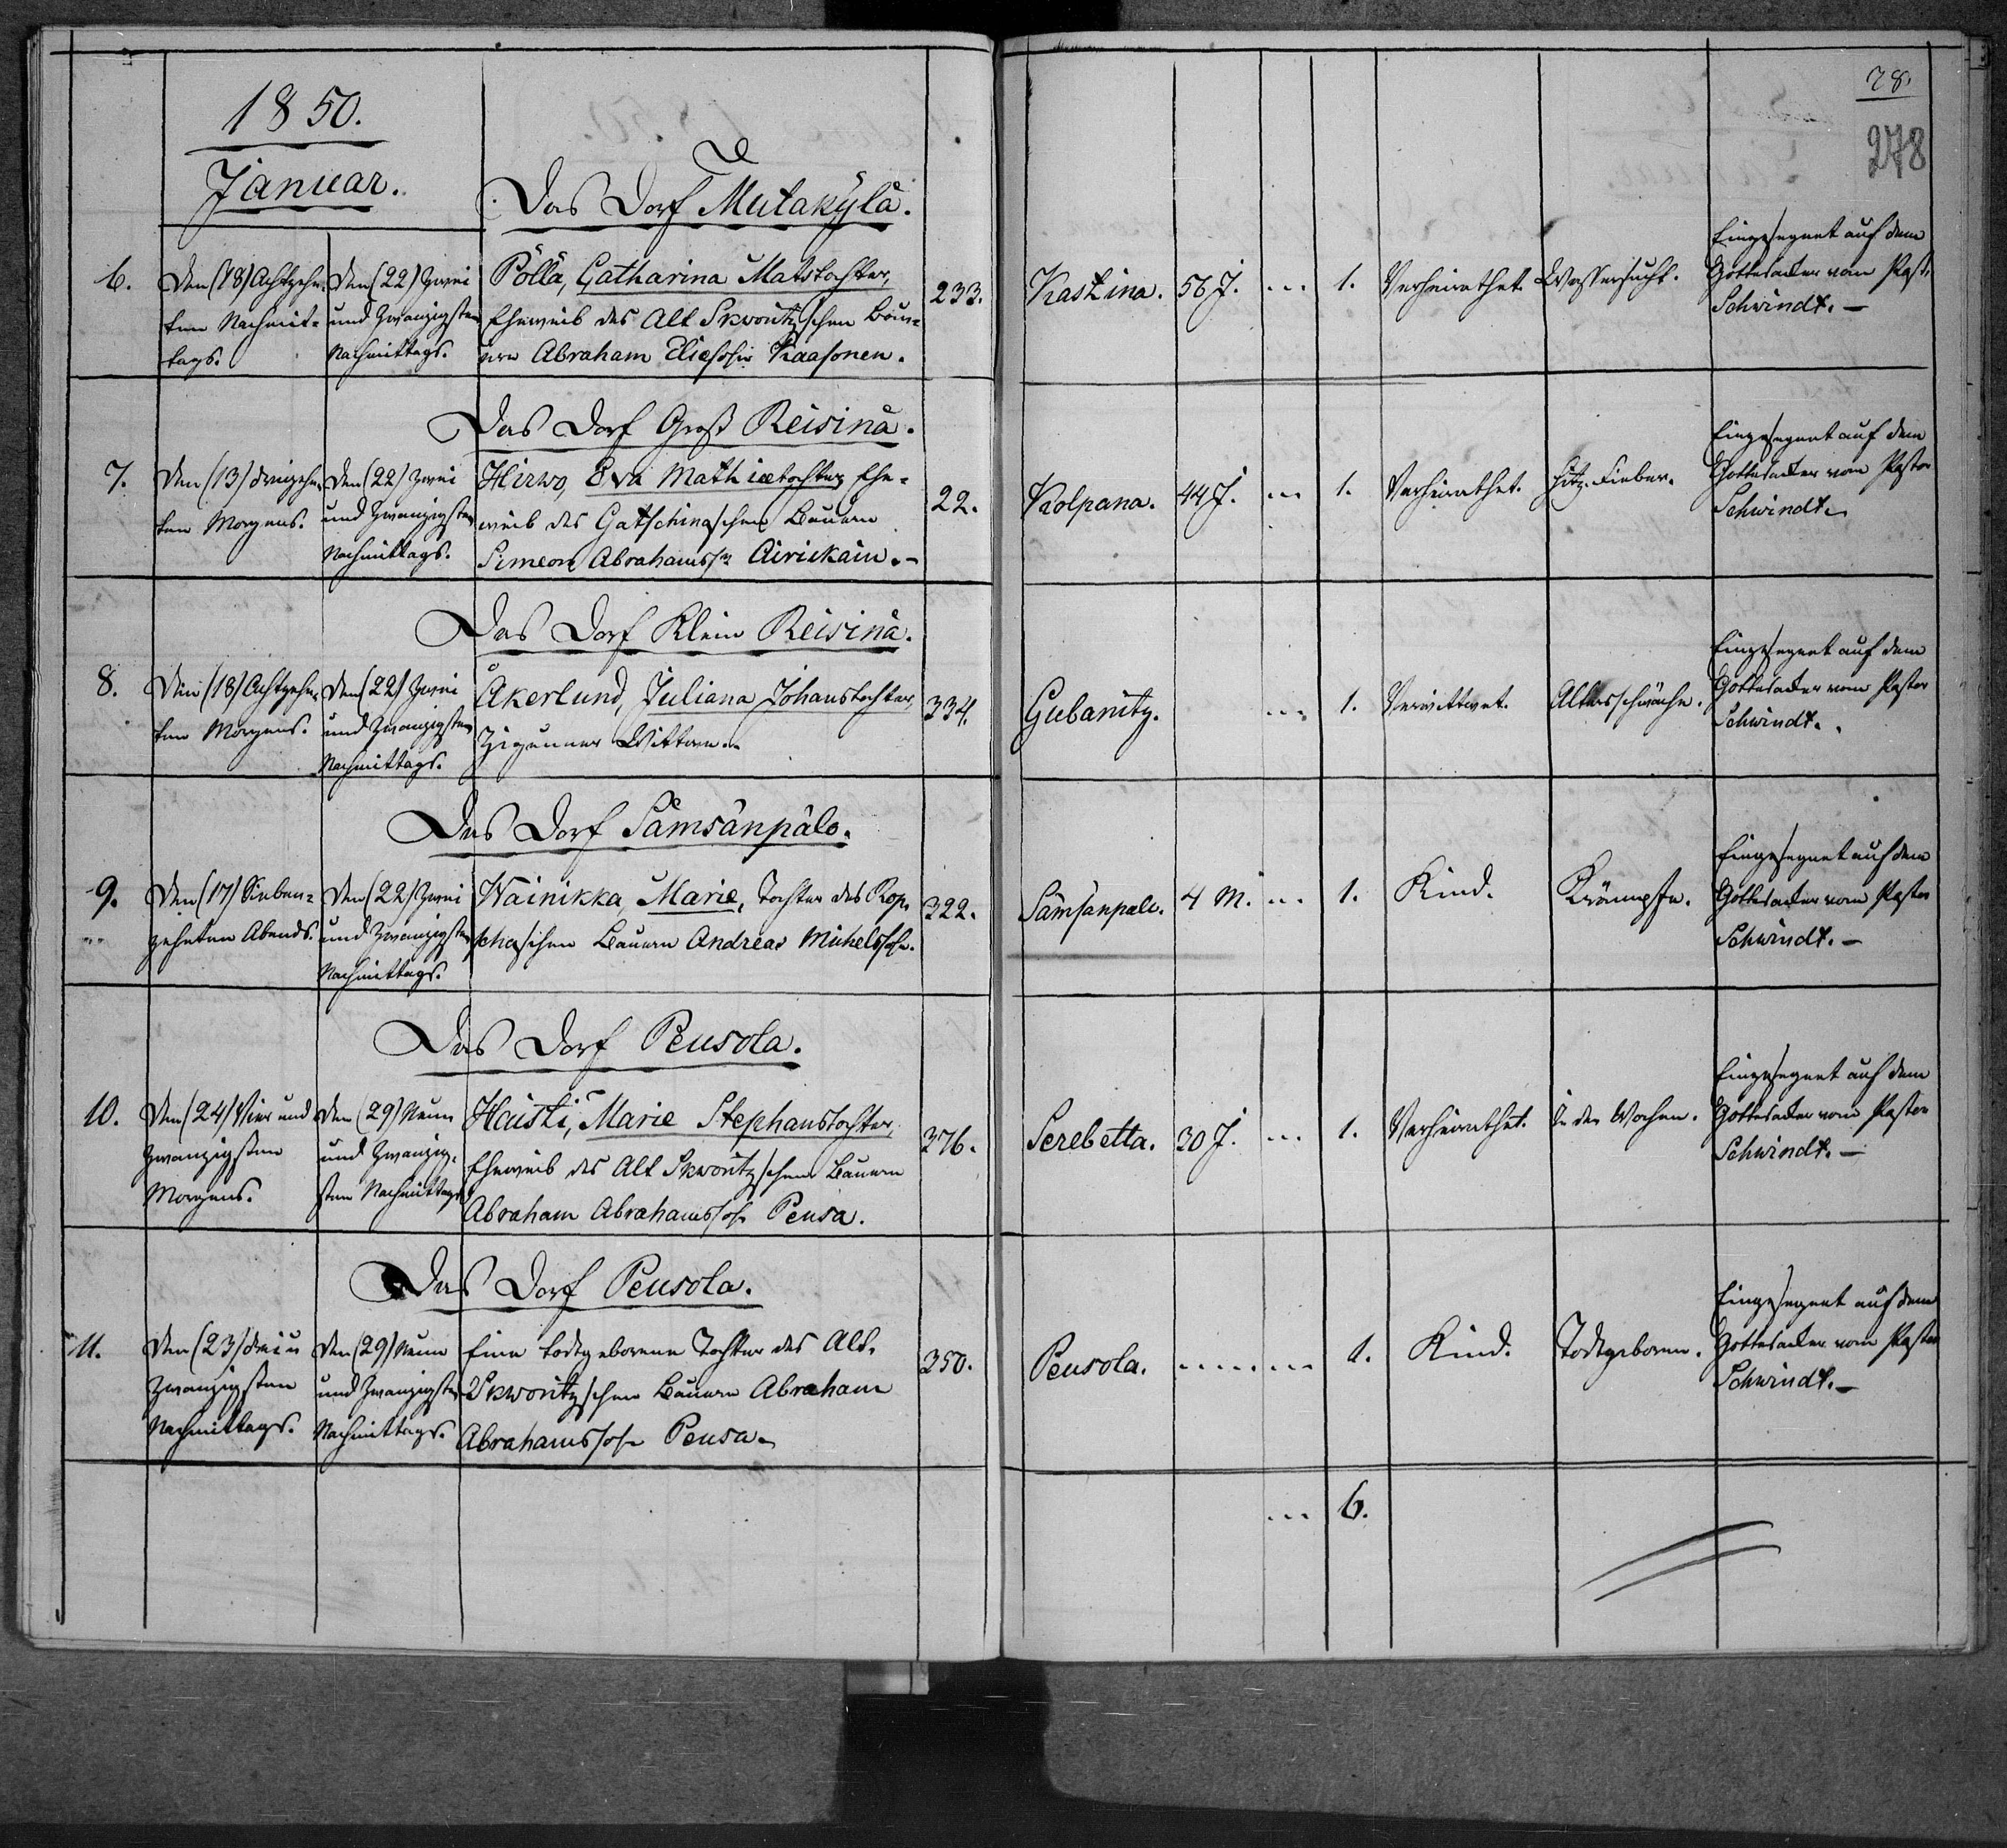 1850.
Januar.
Das Dorf Mutakylä.
6. Den (18) Achtzehn-
ten Nachmit-
tags.
Den (22) Zwei
und Zwanzigsten
Nachmittags.
Pöllä, Catharina Matstochter,
Eheweib des Alt Skworitzschen Bau-
ern Abraham Eliassohn Kaasonen.
233.
Das Dorf Groß Reisinä.
7. Den (13) dreizehn-
ten Morgens.
Den (22) Zwei
und Zwanzigsten
Nachmittags.
Hirwo, Eva Mathiaetochter Ehe-
weib des Gatschinaschen Bauern
Simeon Abrahamss. Airikain.-
22.
Das Dorf Klein Reisinä.
8. Den (18) Achtzehn-
ten Morgens.
Den (22) Zwei
und Zwanzigsten
Nachmittags.
Åkerlund, Juliana Johanstochter,
Zigeuner Wittwe.
334.
Das Dorf Sämsänpälo.
9. Den (17) Sieben-
zehnten Abends.
Den (22) Zwei
und Zwanzigsten
Nachmittags.
Wäinikka, Marie, Tochter des Rop-
schaschen Bauern Andreas Michelssohn.
322.
Das Dorf Peusola.
10. Den (24) Vier und
Zwanzigsten
Morgens.
Den (29) Neun
und Zwanzig-
sten Nachmittags
Haisti, Marie Stephanstochter,
Eheweib des Alt Skworitzschen Bauern
Abraham Abrahamssohn Peusa.
376.
Das Dorf Peusola.
11. Den (23) drei u
Zwanzigsten
Nachmittags.
Den (29) Neun
und Zwanzigsten
Nachmittags.
Eine todtgeborene Tochter des Alt-
Skworitzschen Bauern Abraham
Abrahamssohn Peusa.
350.
78.
278
Kaskina. 56 J. ... 1. Verheirathet. Wassersucht.
Eingesegnet auf dem
Gottesacker vom Past.
Schwindt.-
Kolpana. 44 J. ... 1. Verheirathet. Hitz. Fieber.
Eingesegnet auf dem
Gottesacker vom Pastor
Schwindt.
Gubanitz. ... 1. Verwittwet. Altersschwäche.
Eingesegnet auf dem
Gottesacker vom Pastor
Schwindt.
Sämsänpälo. 4 M. ... 1. Kind. Krämpfe.
Eingesegnet auf dem
Gottesacker vom Pastor
Schwindt.-
Serebetta. 30 J. ... 1. Verheirathet. In den Wochen.
Eingesegnet auf dem
Gottesacker vom Pastor
Schwindt.-
Peusola. ... 1. Kind. Todtgeboren.
Eingesegnet auf dem
Gottesacker vom Pastor
Schwindt.-
... 6.